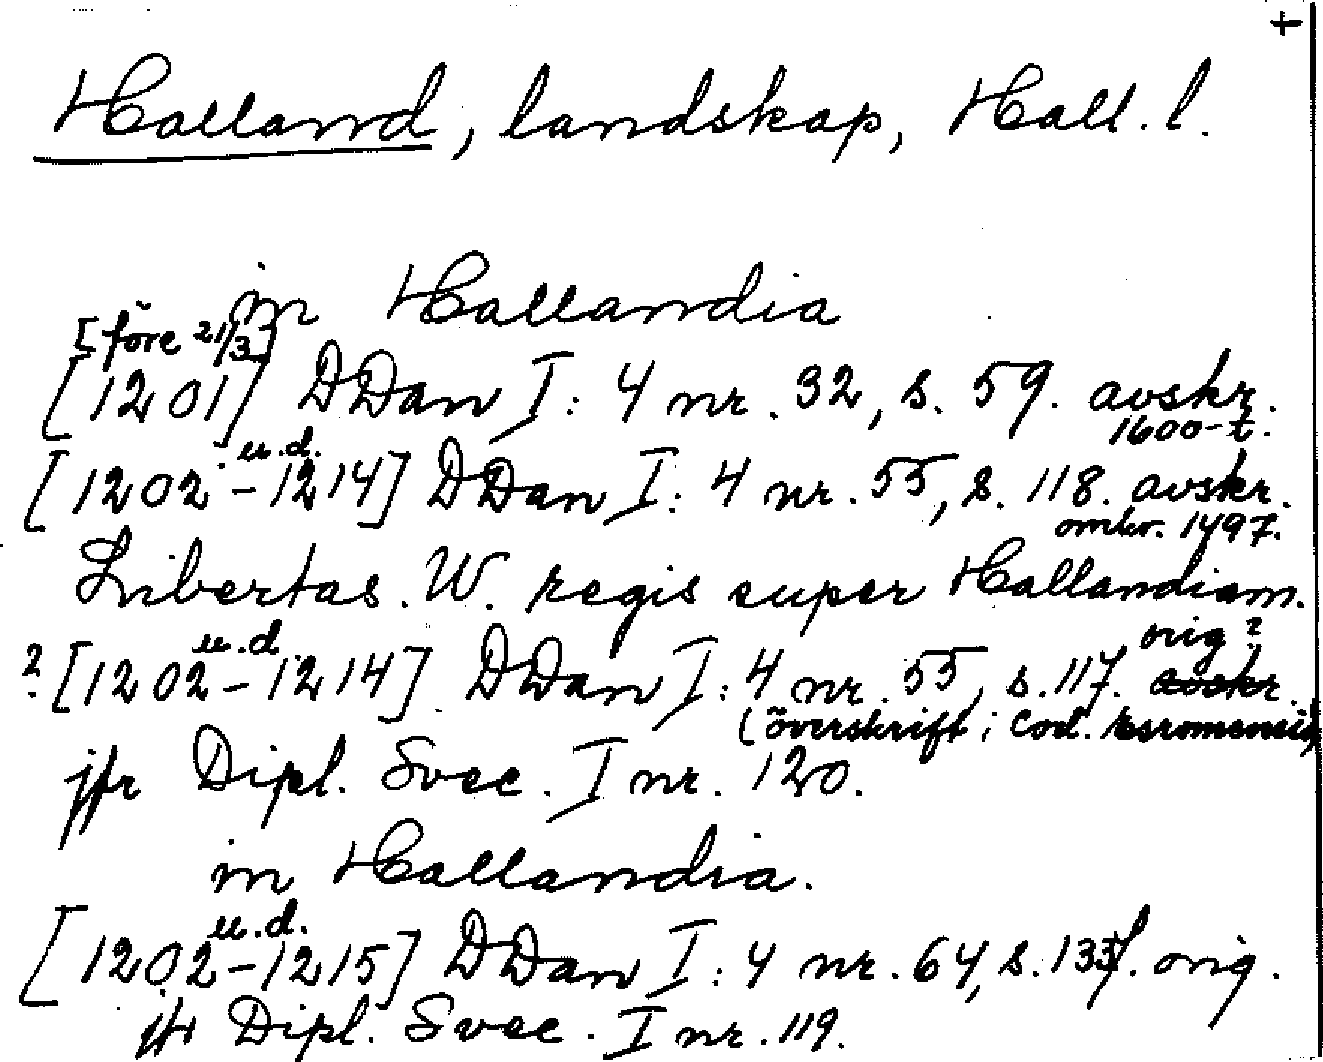 +
Halland, landskap, Hall. l.
in Hallandia
[före 21/3]
[1201] DDan I: 4 nr. 32, s. 59. avskr.
1600-t.
u.d.
[1202-1214] DDan I: 4 nr. 55, s. 118. avskr.
omkr. 1497.
Libertas. W. regis super Hallandiam.
u.d. orig?
? [1202-1214] DDan I: 4 nr. 55, s. 117. avskr.
(överskrift i Cod. Esromensis)
jfr Dipl. Svec. I nr. 120.
in Hallandia.
u.d.
[1202-1215] DDan I: 4 nr. 64, s. 133f. orig.
jfr Dipl. Svec. I nr. 119.